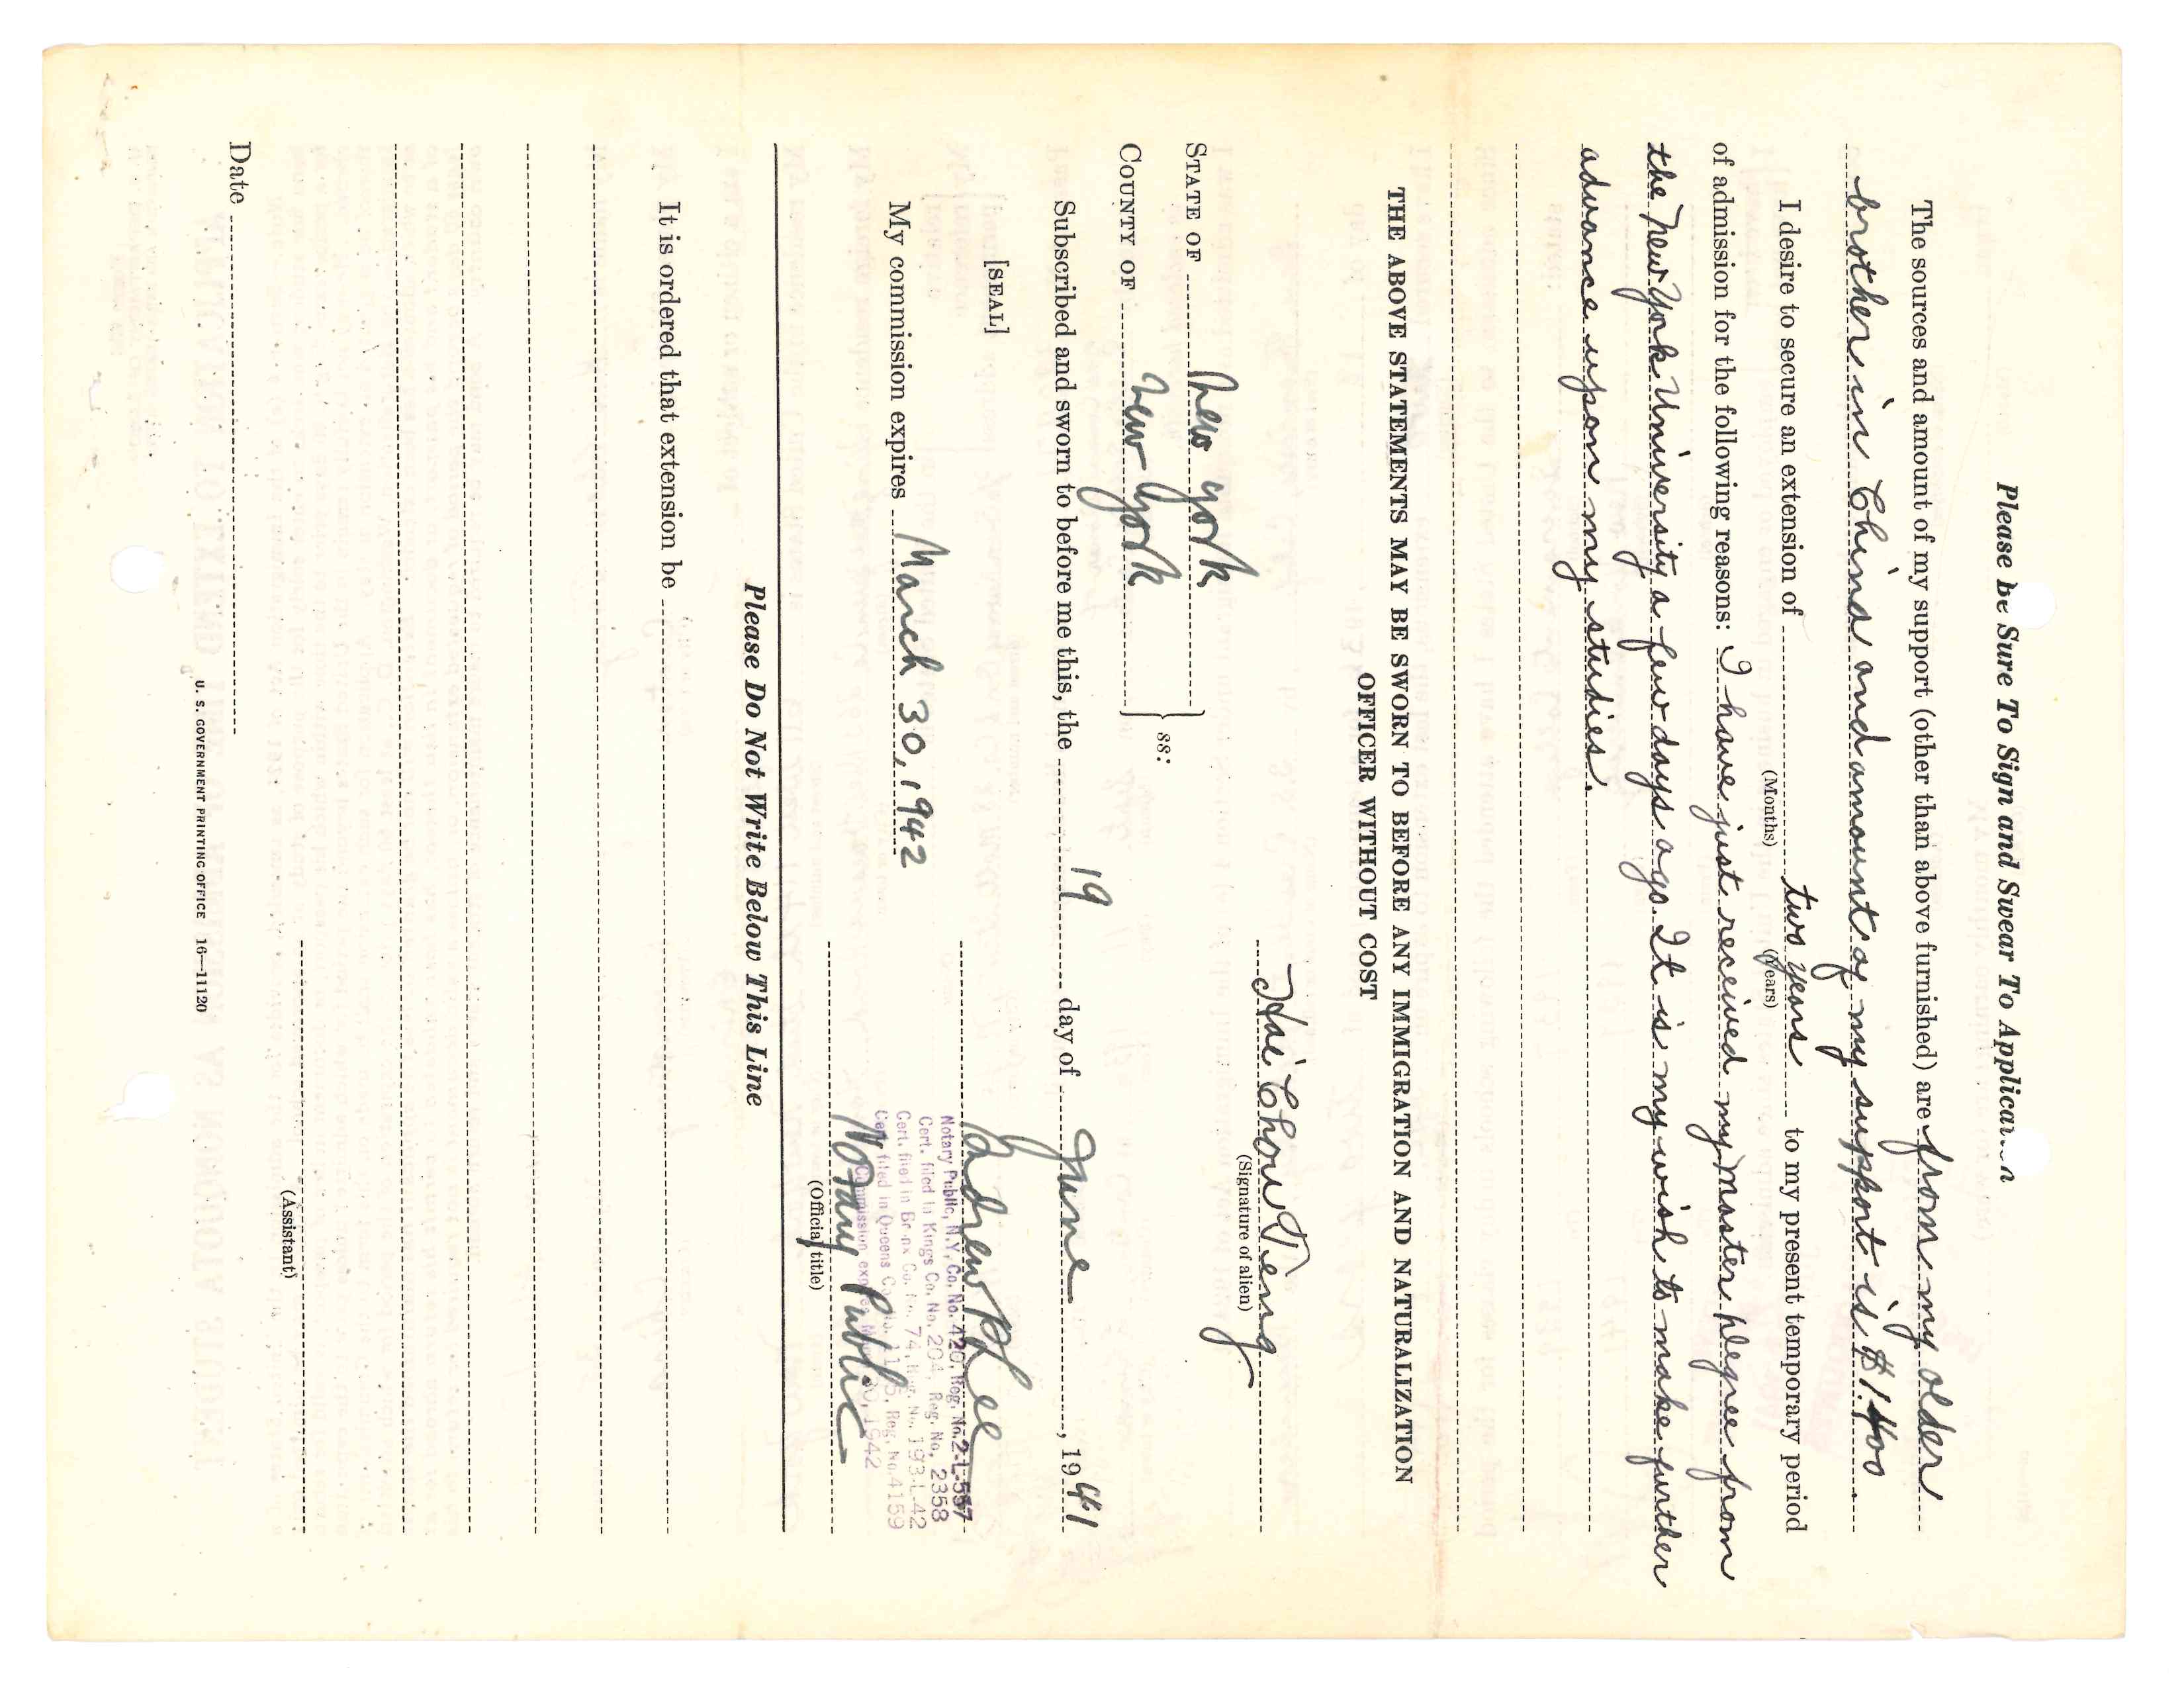 Please be Sure To Sign and Swear To Application
The sources and amount of my support (other than above furnished) are from my older
brother in China and amount of my support is $1.400.
I desire to secure an extension of two years to my present temporary period
(Months) (Years)
of admission for the following reasons: I have just received my Master Degree from
the New York University a few days ago. It is my wish to make further
advance upon my studies.
THE ABOVE STATEMENTS MAY BE SWORN TO BEFORE ANY IMMIGRATION AND NATURALIZATION
OFFICER WITHOUT COST
Hai Chow Teng
(Signature of alien)
STATE OF New York
ss:
COUNTY OF New York
Subscribed and sworn to before me this, the 19 day of June, 1941
[SEAL]
Andrew P Lee
Notary Public, N.Y. Co. No. 420, Reg. No. 2-L-557
Cert. filed in Kings Co. No. 204, Reg. No. 2358
Cert. filed in Bronx Co. No. 74, Reg. No. 193-L-42
Cert. filed in Queens Co. No. Reg. No. 4159
Commission expires March 30, 1942
My commission expires March 30, 1942
Notary Public
(Official title)
Please Do Not Write Below This Line
It is ordered that extension be
(Assistant)
Date
U. S. GOVERNMENT PRINTING OFFICE 16—11120